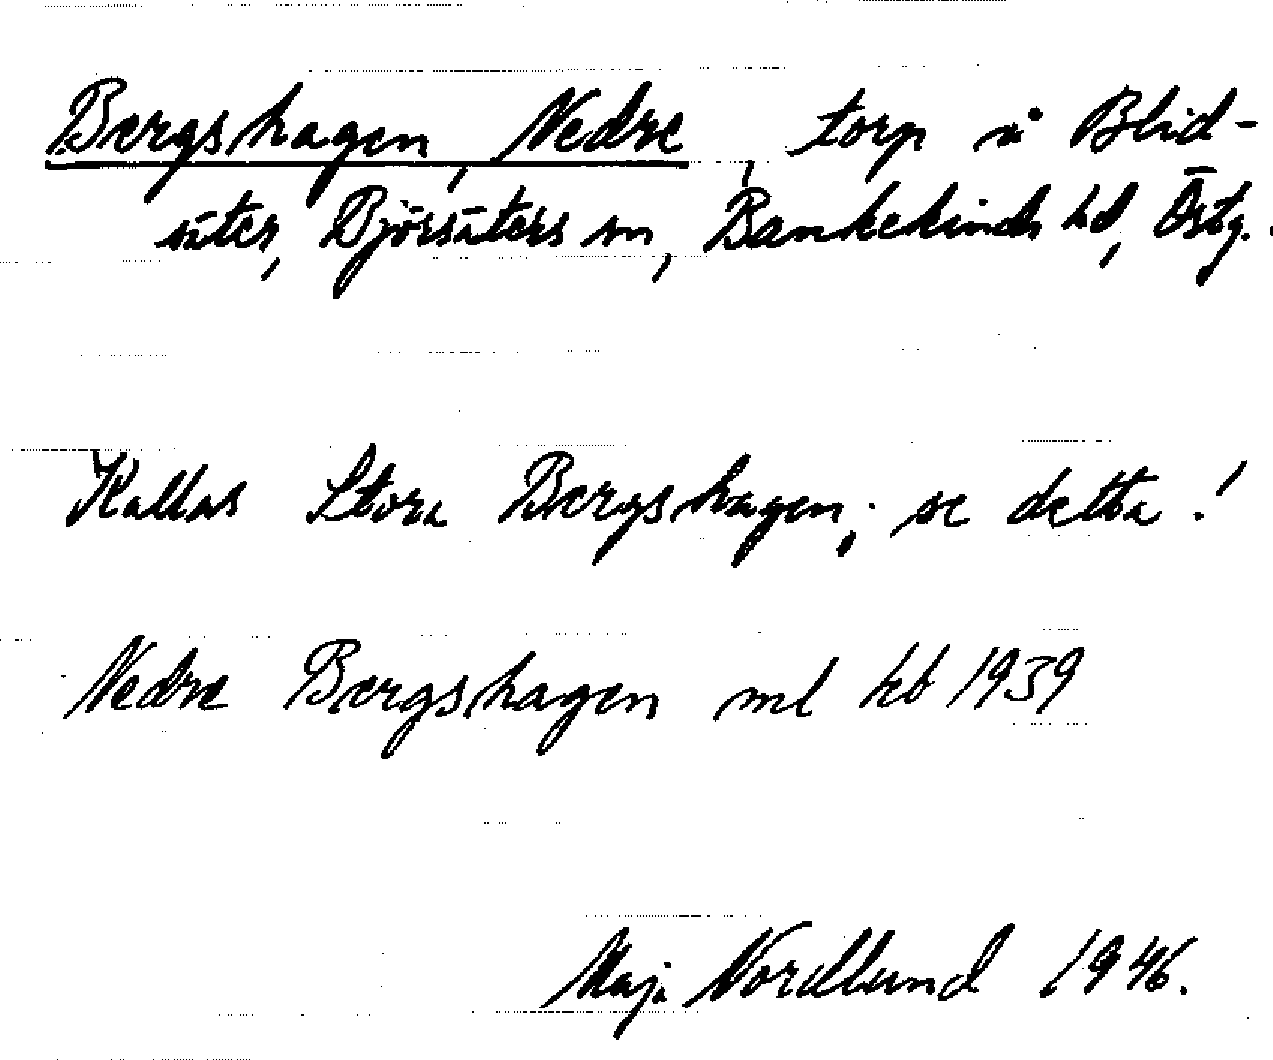 Bergshagen, Nedre, torp å Blid-
säter, Björsäters sn, Bankekinds hd, Östg.
Kallas Stora Bergshagen; se detta!
Nedre Bergshagen ml kb 1939
Maja Nordlund 1946.